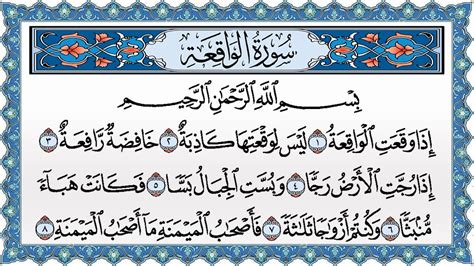 سُورَةُ الْوَاقِعَة
بِسْمِ اللَّهِ الرَّحْمَٰنِ الرَّحِيمِ
إِذَا وَقَعَتِ الْوَاقِعَةُ ١ لَيْسَ لِوَقْعَتِهَا كَاذِبَةٌ ٢ خَافِضَةٌ رَّافِعَةٌ ٣
إِذَا رُجَّتِ الْأَرْضُ رَجًّا ٤ وَبُسَّتِ الْجِبَالُ بَسًّا ٥ فَكَانَتْ هَبَاءً
مُّنْبَثًّا ٦ وَكُنْتُمْ أَزْوَاجًا ثَلَاثَةً ٧ فَأَصْحَابُ الْمَيْمَنَةِ مَا أَصْحَابُ الْمَيْمَنَةِ ٨